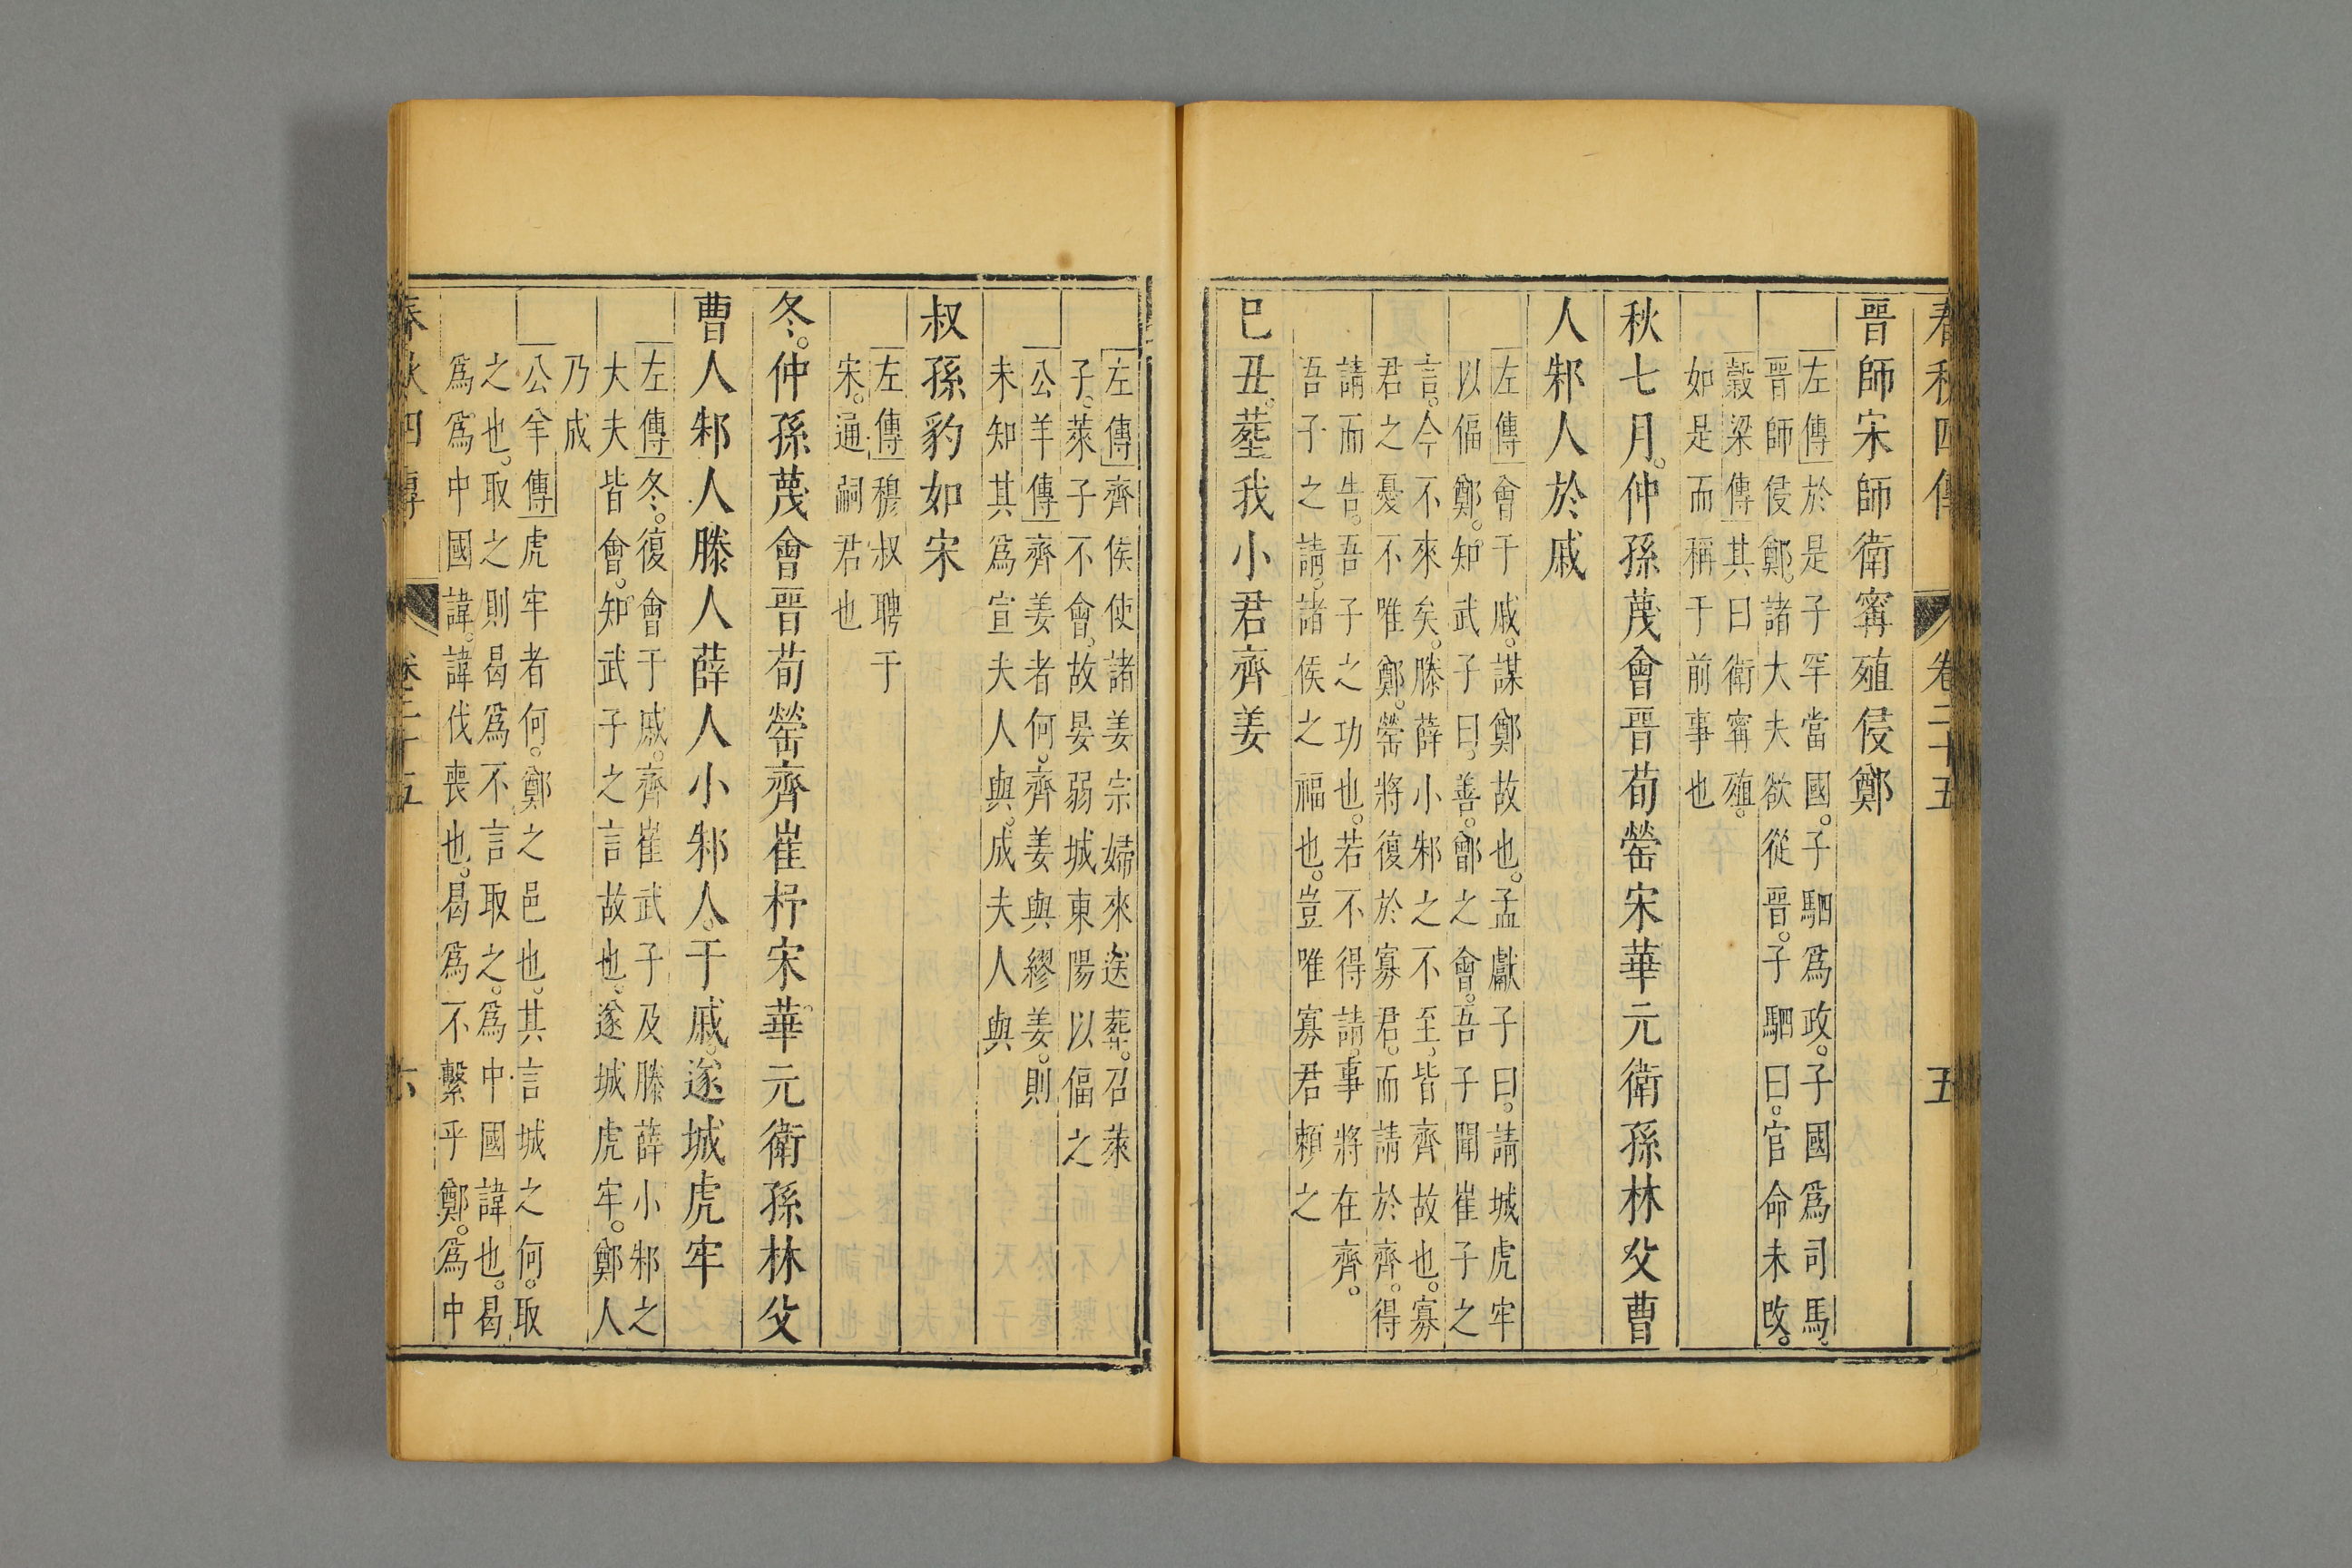 春秋四傳 卷二十五 五
晉師宋師衛甯殖侵鄭
左傳於是子罕當國。子駟爲政。子國爲司馬。
晉師侵鄭。諸大夫欲從晉。子駟曰。官命未改。
穀梁傳其曰衛甯殖。
如是而稱于前事也
秋七月。仲孫蔑會晉荀罃宋華元衛孫林父曹
人邾人於戚
左傳會于戚。謀鄭故也。孟獻子曰。請城虎牢
以偪鄭。知武子曰。善。鄫之會。吾子聞崔子之
言。今不來矣。滕薛小邾之不至。皆齊故也。寡
君之憂不唯鄭。罃將復於寡君。而請於齊。得
請而告。吾子之功也。若不得請。事將在齊。
吾子之請。諸侯之福也。豈唯寡君賴之
己丑。葬我小君齊姜
左傳齊侯使諸姜宗婦來送葬。召萊
子。萊子不會。故晏弱城東陽以偪之
公羊傳齊姜者何。齊姜與繆姜。則
未知其爲宣夫人與。成夫人與
叔孫豹如宋
左傳穆叔聘于
宋。通嗣君也
冬。仲孫蔑會晉荀罃齊崔杼宋華元衛孫林父
曹人邾人滕人薛人小邾人。于戚。遂城虎牢
左傳冬。復會于戚。齊崔武子及滕薛小邾之
大夫皆會。知武子之言故也。遂城虎牢。鄭人
乃成
公羊傳虎牢者何。鄭之邑也。其言城之何。取
之也。取之則曷爲不言取之。爲中國諱也。曷
爲爲中國諱。諱伐喪也。曷爲不繫乎鄭。爲中
春秋四傳 卷二十五 六